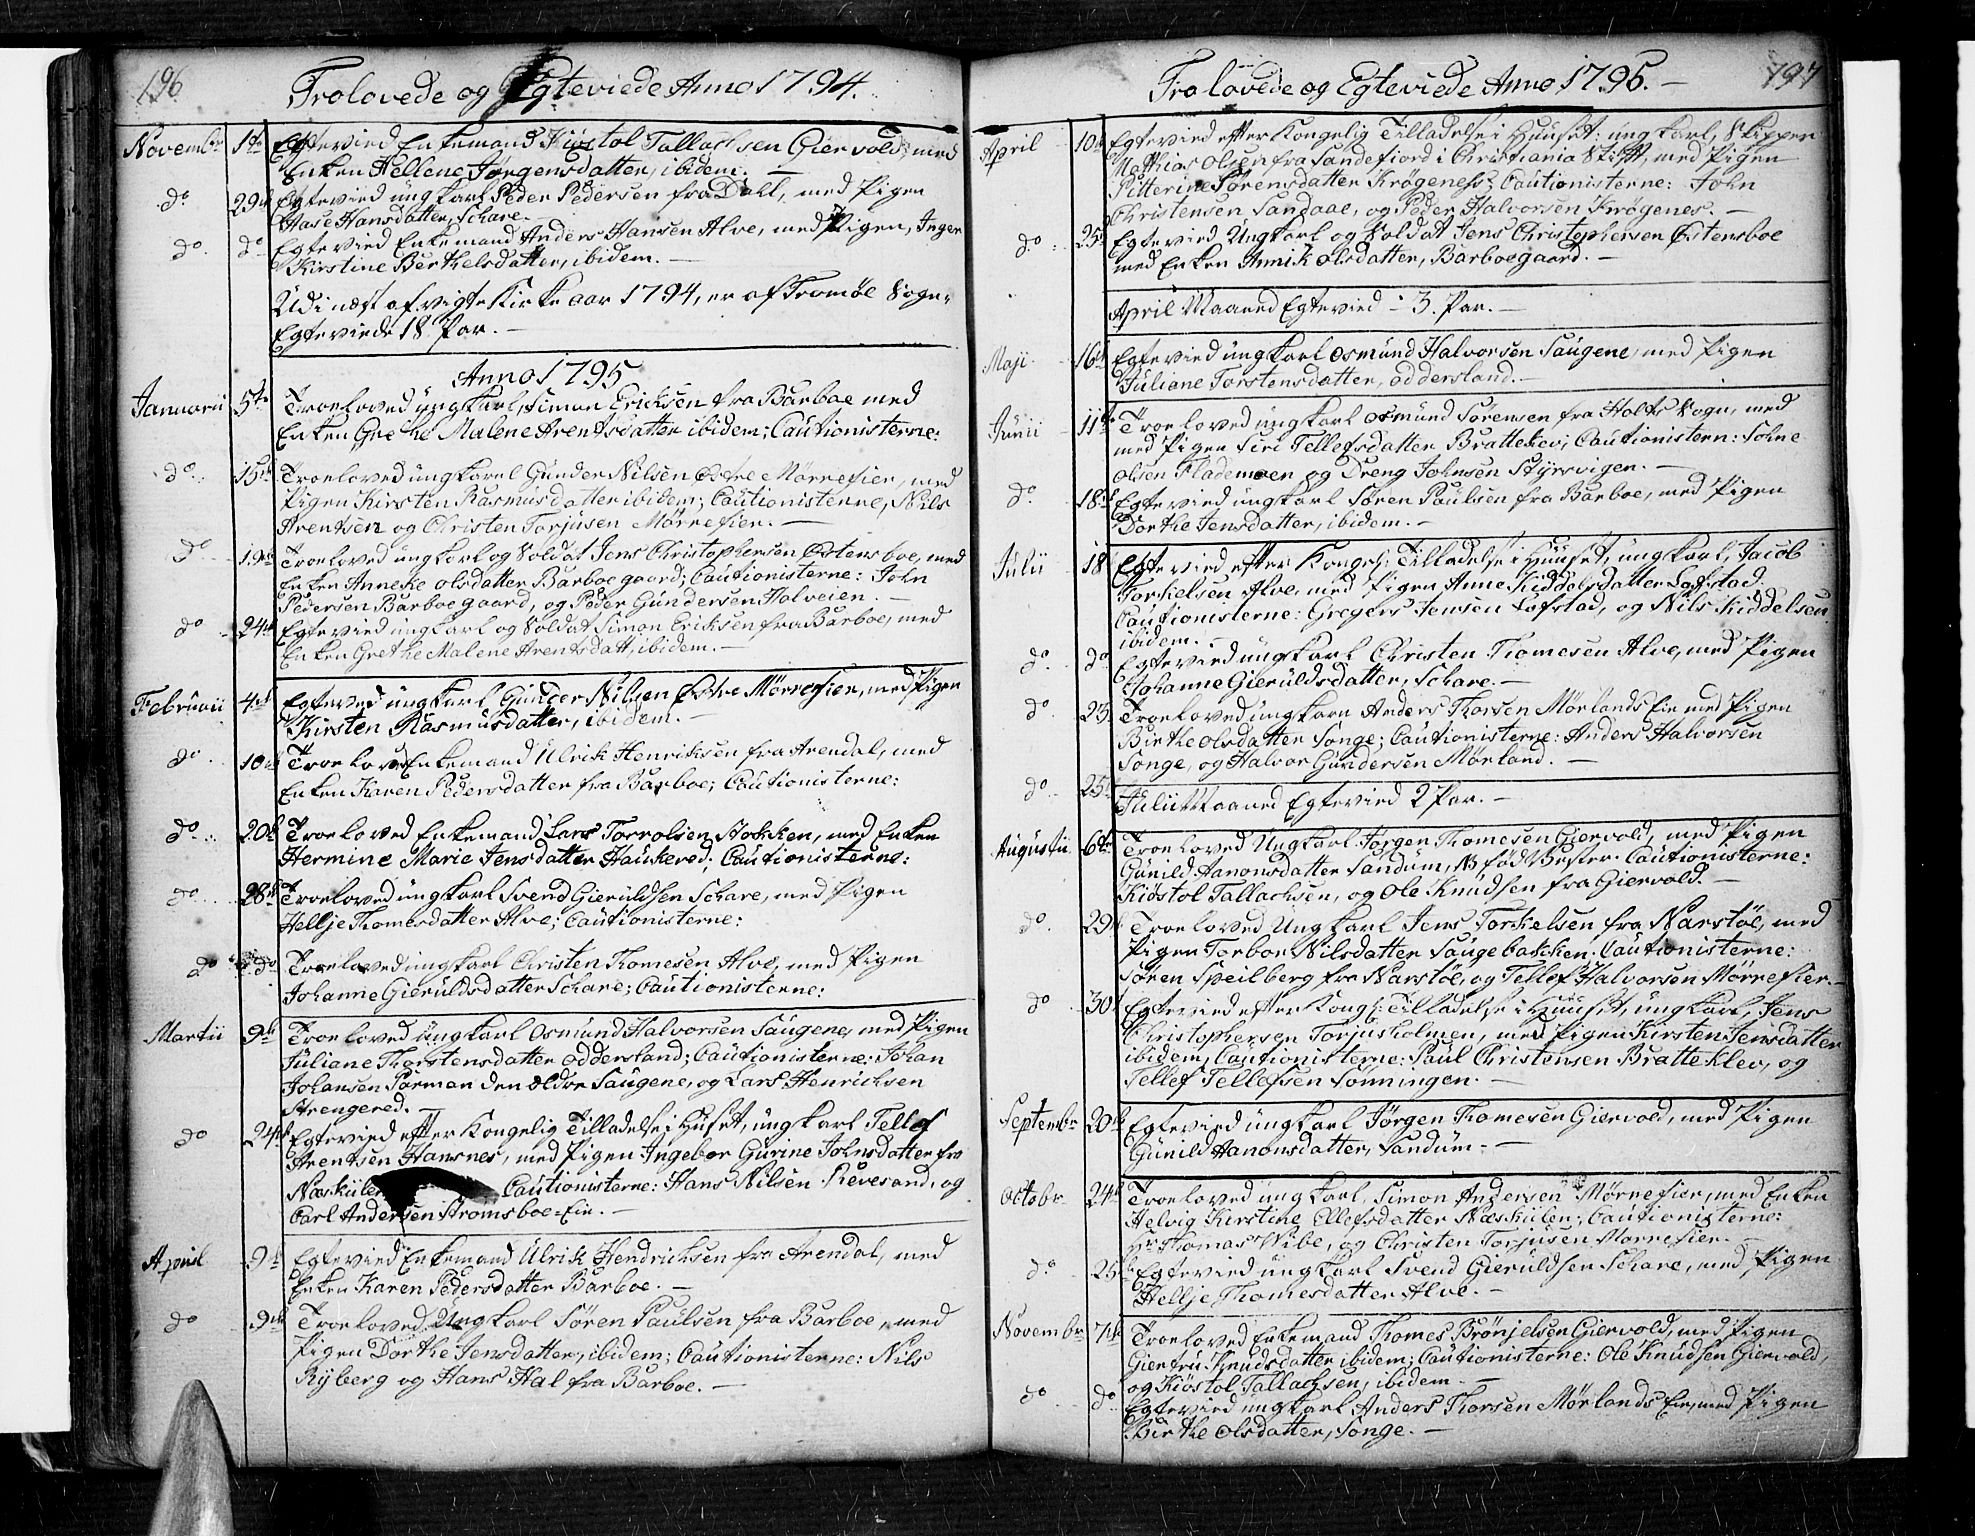 196
Trolovede og Egteviede Anno 1794.
Novembr 1te Egtevied Enkemand Kiøstol Tallachsen Giervold, med
Enken Hellene Jørgensdatter, ibidem. —
do 29de Egtevied ungkarl Peder Pedersen fra Dahl, med Pigen
Aase Hansdatter, Schare. —
do do Egtevied Enkemand Anders Hansen Alve, med Pigen, Inger
Kirstine Berthelsdatter, ibidem. —
Udi næst afvigte Kirke aar 1794, er af Tromøe Sogn,
Egteviede 18 Par. —
Anno 1795
Januarii 5te Troeloved ungkarl, Simon Ericksen fra Barboe med
Enken Grethe Malene Arentsdatter ibidem; Cautionisterne:
do 15de Troeloved ungkarl Gunder Nilsen Østre Mørrefier, med
Pigen Kirsten Rasmusdatter ibidem; Cautionisterne, Nils
Arentsen og Christen Torjusen Mørrefier. —
do 19de Troeloved ungkarl og Soldat Jens Christophersen Østensboe, med
Enken Anneke Olsdatter Barboegaard; Cautionisterne: John
Pedersen Barboegaard, og Peder Gundersen Holveien. —
do 24de Egtevied ungkarl og Soldat Simon Eriksen fra Barboe, med
Enken Grethe Malene Arentsdatt, ibidem. —
Februarii 4de Egtevied ungkarl Gunder Nilsen Østre Mørrefier, med Pigen
Kirsten Rasmusdatter, ibidem. —
do 10de Troeloved Enkemand Ulrik Henriksen fra Arendal, med
Enken Karen Pedersdatter fra Barboe; Cautionisterne:
do 20de Troeloved Enkemand Lars Torrolsen Stokken, med Enken
Hermine Marie Jensdatter Hauskered; Cautionisterne:
do 28de Troeloved ungkarl Svend Gieruldsen Schare, med Pigen
Hellje Thomesdatter Alve; Cautionisterne:
do do Troeloved ungkarl Christen Thomesen Alve, med Pigen
Johanne Gieruldsdatter Schare; Cautionisterne:
Martii 9de Troeloved ungkarl Osmund Halvorsen Saugene, med Pigen
Juliane Thorstensdatter Oddersland; Cautionisterne: Johan
Johansen Sørman den ældre Saugene, og Lars Henrichsen
Strengered.
do 24de Egtevied efter Kongelig Tilladelse i Huset, ungkarl Tellef
Arentsen Hansnes, med Pigen Ingebor Gurine Johnsdatter fra
Næskiilen Cautionisterne: Hans Nilsen Revesand, og
Carl Andersen Strømsboe-Eie. —
April 9de Egtevied Enkemand Ulrik Hendricksen fra Arendal, med
Enken Karen Pedersdatter Barboe. —
do 9de Troeloved Ungkarl Søren Paulsen fra Barboe, med
Pigen Dorthe Jensdatter, ibidem; Cautionisterne: Nils
Ryberg og Hans Hal fra Barboe. —
197
Trolovede og Egteviede Anno 1795. —
April 10de Egtevied efter Kongelig Tilladelse i Huuset: ungkarl, Skipper
Matthias Olsen fra Sandefiord i Christiania Stift, med Pigen
Pitterine Sørensdatter Krøgenes; Cautionisterne: John
Christensen Sandaae, og Peder Halvorsen Krøgenes. —
do 25de Egtevied Ungkarl og Soldat Jens Christophersen Østensboe
med Enken Annik Olsdatter, Barboegaard. —
April Maaned Egtevied - 3. Par. —
Maji 16de Egtevied ungkarl Osmund Halvorsen Saugene, med Pigen
Juliane Torstensdatter, Oddersland. —
Junii 11te Troeloved ungkarl Osmund Sørensen fra Holts Sogn, med
med Pigen Siri Tellefsdatter Bratteklev; Cautionistern: Sohne
Olsen Flademoen og Dreng Johnsen Styrsvigen. —
do 18de Egtevied ungkarl Søren Paulsen fra Barboe, med Pigen
Dorthe Jensdatter, ibidem. —
Julii 18 Egtevied efter Kongel: Tilladelse i Huuset, ungkarl, Jacob
Torkelsen Alve, med Pigen Anne Kiddelsdatter Løfstad.
Cautionisterne: Gregers Jensen Løfstad, og Nils Kiddelsen
ibidem. —
do do Egtevied ungkarl Christen Thomesen Alve, med Pigen
Johanne Gieruldsdatter, Schare. —
do 23 Troeloved ungkarn Anders Thorsen Mørlands Eie med Pigen
Birthe Olsdatter Songe; Cautionisterne: Anders Halvorsen
Songe, og Halvor Gundersen Mørland. —
do 25 Julii Maaned Egtevied 2 Par. —
Augustii 6te Troeloved Ungkarl Jørgen Thomesen Giervold, med Pigen
Gunild Aanonsdatter Sandum, Cautionisterne:
Kiøstol Tallachsen, og Ole Knudsen fra Giervold. —
do 29de Troeloved Ungkarl Jens Torkelsen fra Narstøe, med
Pigen Torbor Nilsdatter Saugebakken. Cautionisterne:
Søren Speilberg fra Narstøe, og Tellef Halvorsen Mørrefier. —
do 30 Egtevied efter Kongl: Tilladelse i Huuset, ungkarl, Jens
Christophersen Torjusholmen, med Pigen Kirsten Jensdatter
ibidem, Cautionisterne: Paul Christensen Bratteklev, og
Tellef Tellefsen Sønningen. —
Septembr 20de Egtevied ungkarl Jørgen Thomesen Giervold, med Pigen
Gunild Aanonsdatter, Sandum. —
Octobr 24de Troeloved ungkarl, Simon Andersen Mørrefier, med Enken
Helvig Kirstine Ellefsdatter Næskiilen; Cautionisterne:
Hr Thomas Wibe, og Christen Torjusen Mørrefier. —
do 25 Egtevied ungkarl Svend Gieruldsen Schare, med Pigen
Hellje Thomesdatter Alve. —
Novembr 7de Troeloved Enkemand Thomes Brønjelsen Giervold, med Pigen
Giertru Knudsdatter ibidem; Cautionisterne: Ole Knudsen Giervold,
og Kiøstol Tallachsen, ibidem. —
do do Egtevied ungkarl Anders Thorsen Mørlands Eie, med Pigen
Birthe Olsdatter, Songe. —